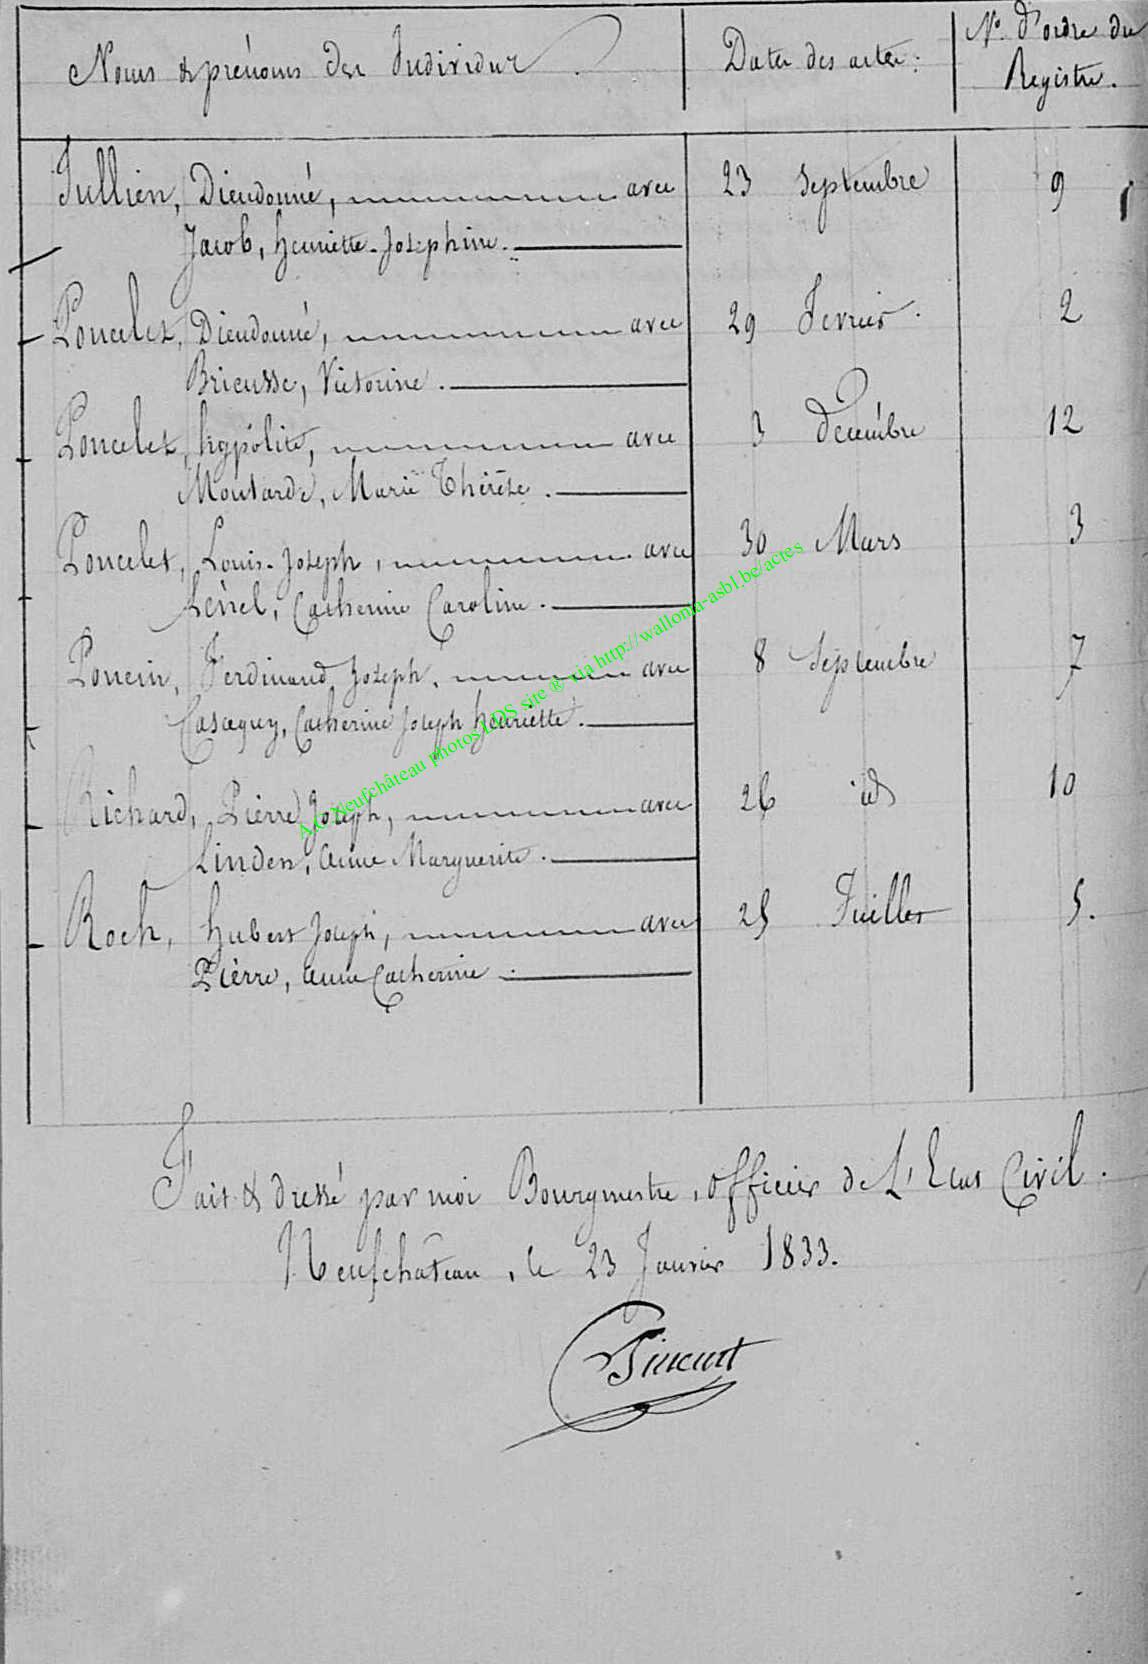 Noms & prénoms des Individus. Dates des actes: N° d'ordre du
Registre.
Jullien, Dieudonné, avec 23 Septembre 9
Jacob, henriette-Josephine.
Poncelet, Dieudonné, avec 29 Fevrier. 2
Bricusse, Victorine.
Poncelet, hypolite, avec 3 Decembre 12
Moutarde, Marie Thérèse.
Poncelet, Louis-Joseph, avec 30 Mars 3
Catherine Caroline.
Poncin, Ferdinand Joseph, avec 8 Septembre 7
Catherine Joseph henriette.
Richard, Pierre Joseph, avec 26 id 10
Linden, Anne Marguerite.
Roch, hubert Joseph, avec 25 Juillet 5.
Pièrre, Anne Catherine.
Fait & dressé par moi Bourgmestre, officier de L'Etat Civil.
Neufchâteau, le 23 Janvier 1833.
A.C. Neufchâteau photos LDS site ® via http://wallonia-asbl.be/actes